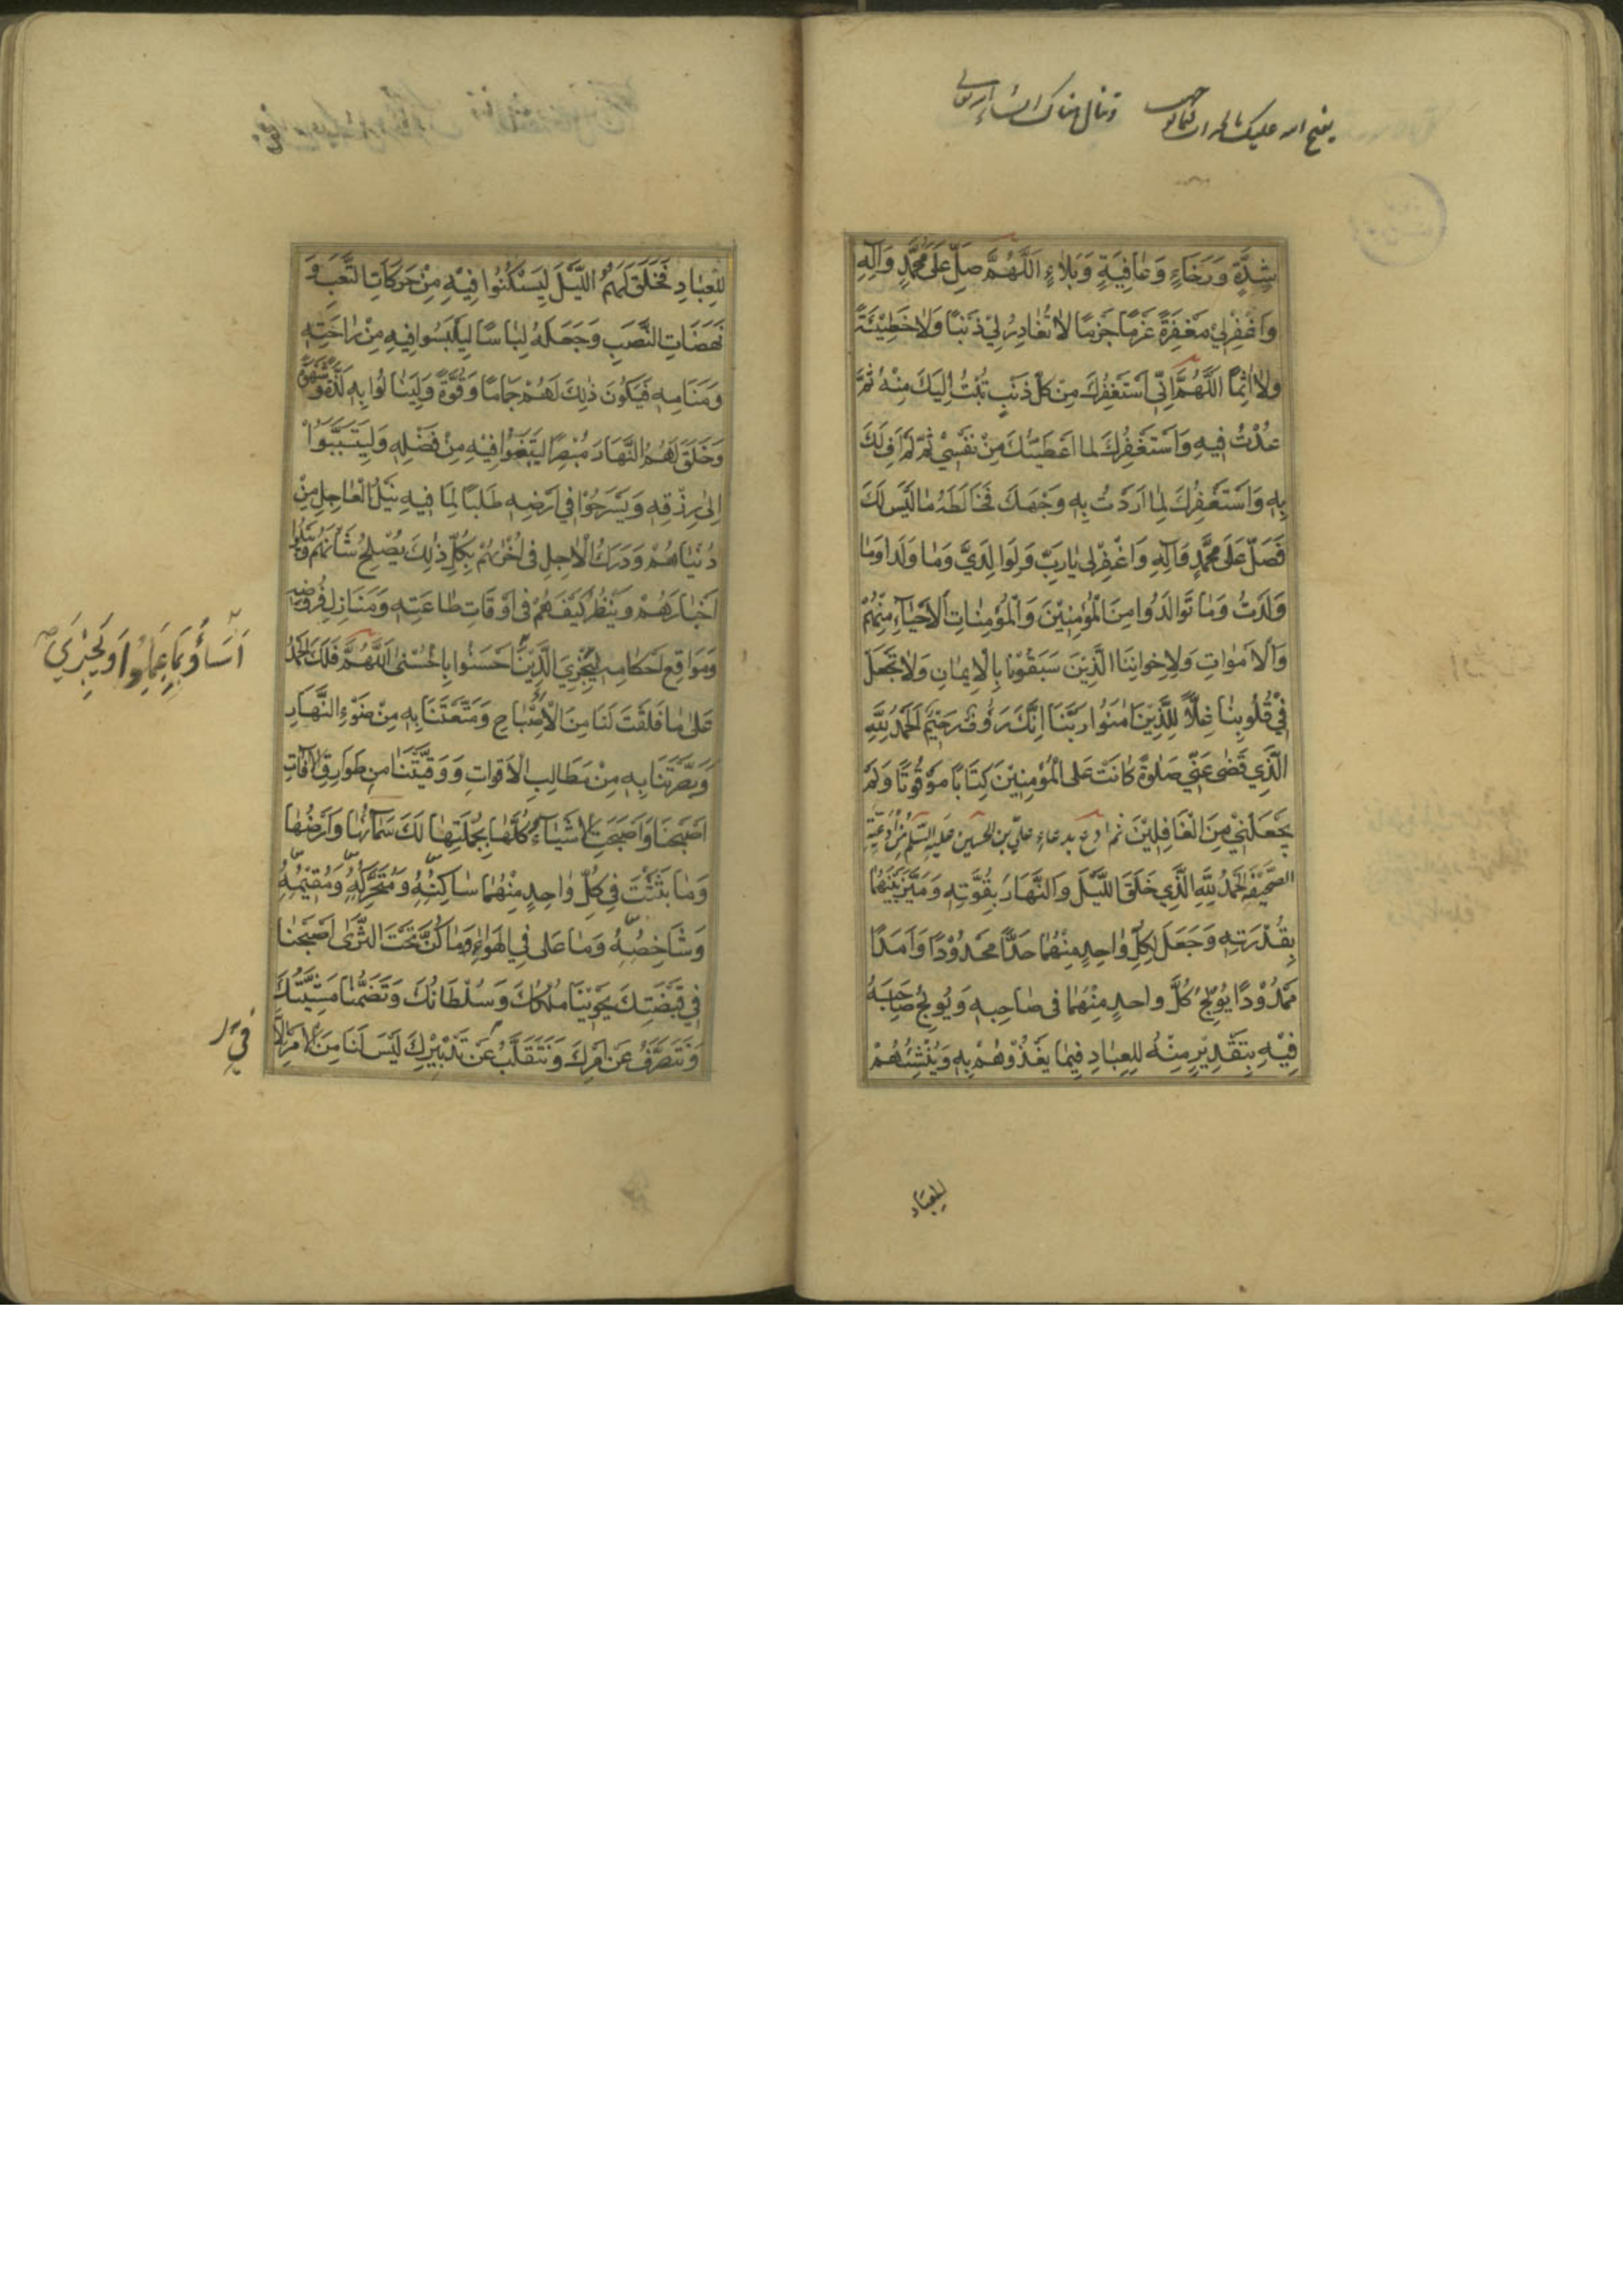 شِدَّةٍ وَرَخَاءٍ وَعَافِيَةٍ وَبَلَاءٍ اَللّٰهُمَّ صَلِّ عَلَى مُحَمَّدٍ وَآلِهِ
وَاغْفِرْ لِي مَغْفِرَةً عَزْمًا جَزْمًا لَا تُغَادِرُ لِي ذَنْبًا وَلَا خَطِيْئَةً
وَلَا اِثْمًا اَللّٰهُمَّ اِنِّي اَسْتَغْفِرُكَ مِنْ كُلِّ ذَنْبٍ تُبْتُ اِلَيْكَ مِنْهُ ثُمَّ
عُدْتُ فِيهِ وَاَسْتَغْفِرُكَ لِمَا اَعْطَيْتُكَ مِنْ نَفْسِيْ ثُمَّ لَمْ اَفِ لَكَ
بِهِ وَاَسْتَغْفِرُكَ لِمَا اَرَدْتُ بِهِ وَجْهَكَ فَخَالَطَهُ مَا لَيْسَ لَكَ
فَصَلِّ عَلَى مُحَمَّدٍ وَآلِهِ وَاغْفِرْ لِي يَا رَبِّ وَلِوَالِدَيَّ وَمَا وَلَدَا وَمَا
وَلَدْتُ وَمَا تَوَالَدُوا مِنَ الْمُؤْمِنِيْنَ وَالْمُؤْمِنَاتِ الْاَحْيَاءِ مِنْهُمْ
وَالْاَمْوَاتِ وَلِاِخْوَانِنَا الَّذِيْنَ سَبَقُوْنَا بِالْاِيمَانِ وَلَا تَجْعَلْ
فِيْ قُلُوبِنَا غِلًّا لِلَّذِيْنَ اٰمَنُوا رَبَّنَا اِنَّكَ رَؤُفٌ رَحِيْمٌ اَلْحَمْدُ لِلّٰهِ
الَّذِي قَضٰى عَنِّي صَلٰوةً كَانَتْ عَلَى الْمُؤْمِنِيْنَ كِتَابًا مَوْقُوتًا وَلَمْ
يَجْعَلْنِيْ مِنَ الْغَافِلِيْنَ ثم ادع بدعاء علي بن الحسين عليه السلام من ادعية
الصحيفة اَلْحَمْدُ لِلّٰهِ الَّذِي خَلَقَ اللَّيْلَ وَالنَّهَارَ بِقُوَّتِهِ وَمَيَّزَ بَيْنَهُمَا
بِقُدْرَتِهِ وَجَعَلَ لِكُلِّ وَاحِدٍ مِنْهُمَا حَدًّا مَحْدُوْدًا وَاَمَدًا
مَمْدُوْدًا يُوْلِجُ كُلَّ وَاحِدٍ مِنْهُمَا فِي صَاحِبِهِ وَيُوْلِجُ صَاحِبَهُ
فِيْهِ بِتَقْدِيْرٍ مِنْهُ لِلْعِبَادِ فِيْمَا يَغْذُوْهُمْ بِهِ وَيُنْشِئُهُمْ
للعباد
لِلْعِبَادِ فَخَلَقَ لَهُمُ اللَّيْلَ لِيَسْكُنُوا فِيْهِ مِنْ حَرَكَاتِ التَّعَبِ وَ
نَهَضَاتِ النَّصَبِ وَجَعَلَهُ لِبَاسًا لِيَلْبَسُوا فِيهِ مِنْ رَاحَتِهِ
وَمَنَامِهِ فَيَكُونَ ذٰلِكَ لَهُمْ جَمَامًا وَقُوَّةً وَلِيَنَالُوا بِهِ لَذَّةً وَشَهْوَةً
وَخَلَقَ لَهُمُ النَّهَارَ مُبْصِرًا لِيَبْتَغُوْا فِيْهِ مِنْ فَضْلِهِ وَلِيَتَسَبَّبُوْا
اِلٰى رِزْقِهِ وَيَسْرَحُوْا فِي اَرْضِهِ طَلَبًا لِمَا فِيهِ نَيْلُ الْعَاجِلِ مِنْ
دُنْيَاهُمْ وَدَرَكُ الْاٰجِلِ فِي اُخْرٰىهُمْ بِكُلِّ ذٰلِكَ يُصْلِحُ شَأْنَهُمْ وَيَبْلُو
اَخْبَارَهُمْ وَيَنْظُرُ كَيْفَ هُمْ فِي اَوْقَاتِ طَاعَتِهِ وَمَنَازِلِ فُرُوْضِهِ
وَمَوَاقِعِ اَحْكَامِهِ لِيَجْزِيَ الَّذِيْنَ اَحْسَنُوا بِالْحُسْنٰى اَللّٰهُمَّ فَلَكَ الْحَمْدُ
اَسَاؤُا بِمَا عَمِلُوا وَيَجْزِيَ
عَلٰى مَا فَلَقْتَ لَنَا مِنَ الْاِصْبَاحِ وَمَتَّعْتَنَا بِهِ مِنْ ضَوْءِ النَّهَارِ
وَبَصَّرْتَنَا بِهِ مِنْ مَطَالِبِ الْاَقْوَاتِ وَوَقَيْتَنَا مِنْ طَوَارِقِ الْاٰفَاتِ
اَصْبَحْنَا وَاَصْبَحَتِ الْاَشْيَاءُ كُلُّهَا بِجُمْلَتِهَا لَكَ سَمَاؤُهَا وَاَرْضُهَا
وَمَا بَثَثْتَ فِي كُلِّ وَاحِدٍ مِنْهُمَا سَاكِنُهُ وَمُتَحَرِّكُهُ وَمُقِيْمُهُ
وَشَاخِصُهُ وَمَا عَلٰى فِي الْهَوَاءِ وَمَا كَنَّ تَحْتَ الثَّرٰى اَصْبَحْنَا
فِي قَبْضَتِكَ يَحْوِيْنَا مُلْكُكَ وَسُلْطَانُكَ وَتَضُمُّنَا مَشِيَّتُكَ
وَنَتَصَرَّفُ عَنْ اَمْرِكَ وَنَتَقَلَّبُ عَنْ تَدْبِيْرِكَ لَيْسَ لَنَا مِنَ الْاَمْرِ اِلَّا
في